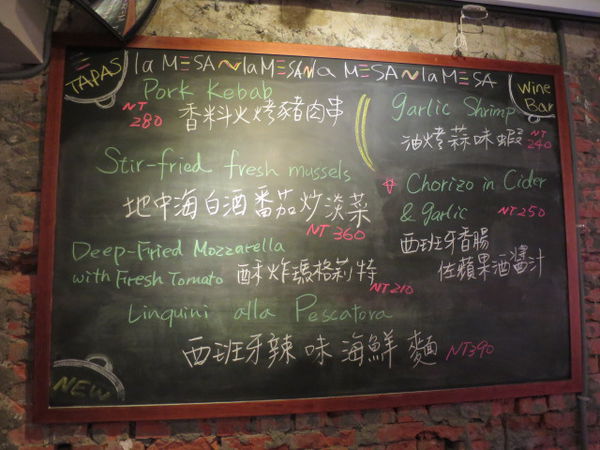 TAPAS
la MESA la MESA la MESA la MESA
Wine
Bar
Pork Kebab
NT
280
香料火烤豬肉串
Garlic Shrimp
油烤蒜味蝦 NT
240
Stir-fried fresh mussels
地中海白酒番茄炒淡菜
NT 360
Chorizo in Cider
& garlic NT 250
西班牙香腸
佐蘋果酒醬汁
Deep-Fried Mozzarella
with Fresh Tomato 酥炸瑪格莉特
NT 210
Linquini alla Pescatora
西班牙辣味海鮮麵 NT390
NEW